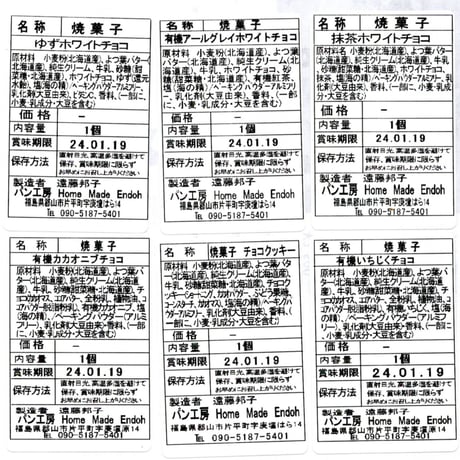 名称 焼菓子
ゆずホワイトチョコ
原材料 小麦粉(北海道産)、よつ葉
バター(北海道産)、純生クリーム(北海
道産)、牛乳、砂糖(甜
菜糖・北海道産)、ホワイトチョコ、ゆず(還元
水飴)、塩(海の精)/ベーキングパウダーアルミフリー、
乳化剤(大豆由来)、香料、(一部に
小麦・乳成分・大豆を含む)
価格 −
内容量 1個
賞味期限 24.01.19
保存方法 直射日光、高温多湿を避けて
保存、賞味期限に限らず
お早めにお召し上がりください
製造者 遠藤邦子
パン工房 Home Made Endoh
福島県郡山市片平町字庚壇原14
TEL 090-5187-5401
名称 焼菓子
有機アールグレイホワイトチョコ
原材料 小麦粉(北海道産)、よつ葉
バター(北海道産)、純生クリーム(北海
道産)、牛乳、ホワイトチョコ、砂
糖(甜菜糖・北海道産)、有機紅茶、
塩(海の精)/ベーキングパウダーアルミ
フリー、乳化剤(大豆由来)、香料、(一部
に小麦・乳成分・大豆を含む)
価格 −
内容量 1個
賞味期限 24.01.19
保存方法 直射日光、高温多湿を避けて
保存、賞味期限に限らず
お早めにお召し上がりください
製造者 遠藤邦子
パン工房 Home Made Endoh
福島県郡山市片平町字庚壇原14
TEL 090-5187-5401
名称 焼菓子
抹茶ホワイトチョコ
原材料 小麦粉(北海道産)、よつ葉
バター(北海道産)、純生クリーム(北海道産)、牛乳、砂糖(甜菜
糖・北海道産)、ホワイトチョコ、
抹茶、塩(海の精)/ベーキングパウダー
アルミフリー、乳化剤(大豆由来)、香料、(一部
に小麦・乳成分・大豆を含む)
価格 −
内容量 1個
賞味期限 24.01.19
保存方法 直射日光、高温多湿を避けて
保存、賞味期限に限らず
お早めにお召し上がりください
製造者 遠藤邦子
パン工房 Home Made Endoh
福島県郡山市片平町字庚壇原14
TEL 090-5187-5401
名称 焼菓子
有機カカオニブチョコ
原材料 小麦粉(北海道産)、よつ葉バ
ター(北海道産)、純生クリーム(北海道産)
、牛乳、砂糖(甜菜糖・北海道産)、
チョコ(カカオマス、ココアバター、全粉乳、植物油、コ
コアパウダー)、有機カカオニブ、塩
(海の精)、/ベーキングパウダー(アルミフ
リー)、乳化剤(大豆由来)・香料、(一部
に、小麦・乳成分・大豆を含む)
価格 −
内容量 1個
賞味期限 24.01.19
保存方法 直射日光、高温多湿を避けて
保存、賞味期限に限らず
お早めにお召し上がりください
製造者 遠藤邦子
パン工房 Home Made Endoh
福島県郡山市片平町字庚壇原14
TEL 090-5187-5401
名称 焼菓子 チョコクッキー
原材料 小麦粉(北海道産)、よつ葉
バター(北海道産)、純生クリーム(北海道
産)、牛乳、砂糖(甜菜糖・北海道産)、チョコク
ッキー
コーンスターチ、カカオマス、塩(海の精)/ベーキング
パウダーアルミフリー、乳化剤、香料、(一部に
小麦・乳成分・大豆を含む)
価格 −
内容量 1個
賞味期限 24.01.19
保存方法 直射日光、高温多湿を避けて
保存、賞味期限に限らず
お早めにお召し上がりください
製造者 遠藤邦子
パン工房 Home Made Endoh
福島県郡山市片平町字庚壇原14
TEL 090-5187-5401
名称 焼菓子
有機いちじくチョコ
原材料 小麦粉(北海道産)、よつ葉バ
ター(北海道産)、純生クリーム(北海道産)
、牛乳、砂糖(甜菜糖・北海道産)、
チョコ(カカオマス、ココアバター、全粉乳、植物油、コ
コアパウダー)、有機いちじく、塩
(海の精)、/ベーキングパウダー(アルミフ
リー)、乳化剤(大豆由来)・香料、(一部
に、小麦・乳成分・大豆を含む)
価格 −
内容量 1個
賞味期限 24.01.19
保存方法 直射日光、高温多湿を避けて
保存、賞味期限に限らず
お早めにお召し上がりください
製造者 遠藤邦子
パン工房 Home Made Endoh
福島県郡山市片平町字庚壇原14
TEL 090-5187-5401